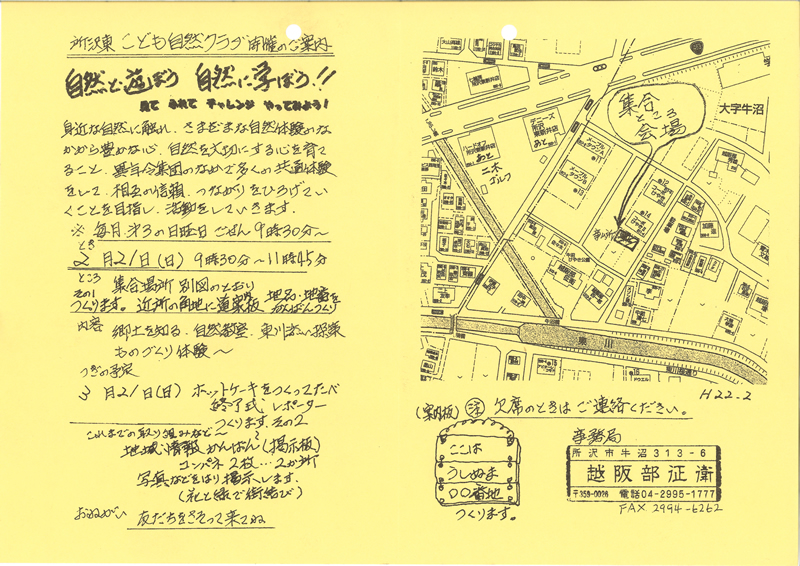 所沢東 こども自然クラブ 開催のご案内
自然と遊ぼう 自然に学ぼう!!
見て ふれて チャレンジ やってみよう!
身近な自然に触れ、さまざまな自然体験のな
かから豊かな心、自然を大切にする心を育て
ること、異年令集団のなかで多くの共通体験
をして、相互の信頼、つながりをひろげてい
くことを目指し、活動をしていきます。
※ 毎月 第3の日曜日 ごぜん 9時30分~
とき
2月21日(日) 9時30分~11時45分
ところ 集合場所 別図のとおり
その1
つくります。近所の角地に道案内板 地名・地番を
かんばんづくり
内容 郷土を知る、自然教室、東川だん探策
ものづくり体験~
つぎの予定
3月21日(日) ホットケーキをつくってたべ
終了式 レポーター
つくります その2
これまでの取り組みなど~
地域・情報かんばん(掲示板)
コンパネ2枚…2か所
写真などをはり掲示します。
(花と緑で街結び)
おねがい 友だちをさそって来てね
集合
ところ
会場
大字牛沼
デニーズ
所沢
東新井店
あと
あと
二木
ゴルフ
東川
東川桜通り
H22-2
(案内板) 注 欠席のときは ご連絡ください。
ここは
うしぬま
〇〇番地
つくります。
事務局
所沢市牛沼313-6
越阪部征衛
〒359-0026 電話04-2995-1777
FAX 2994-6262